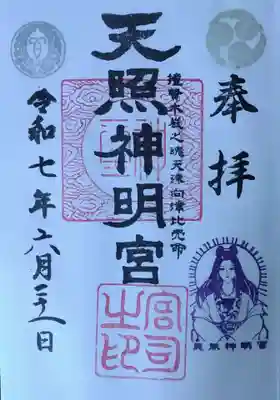 奉拝
撞賢木厳之魂天疎向津比売命
天照神明宮
令和七年六月二十一日
宮司之印
天照神明宮